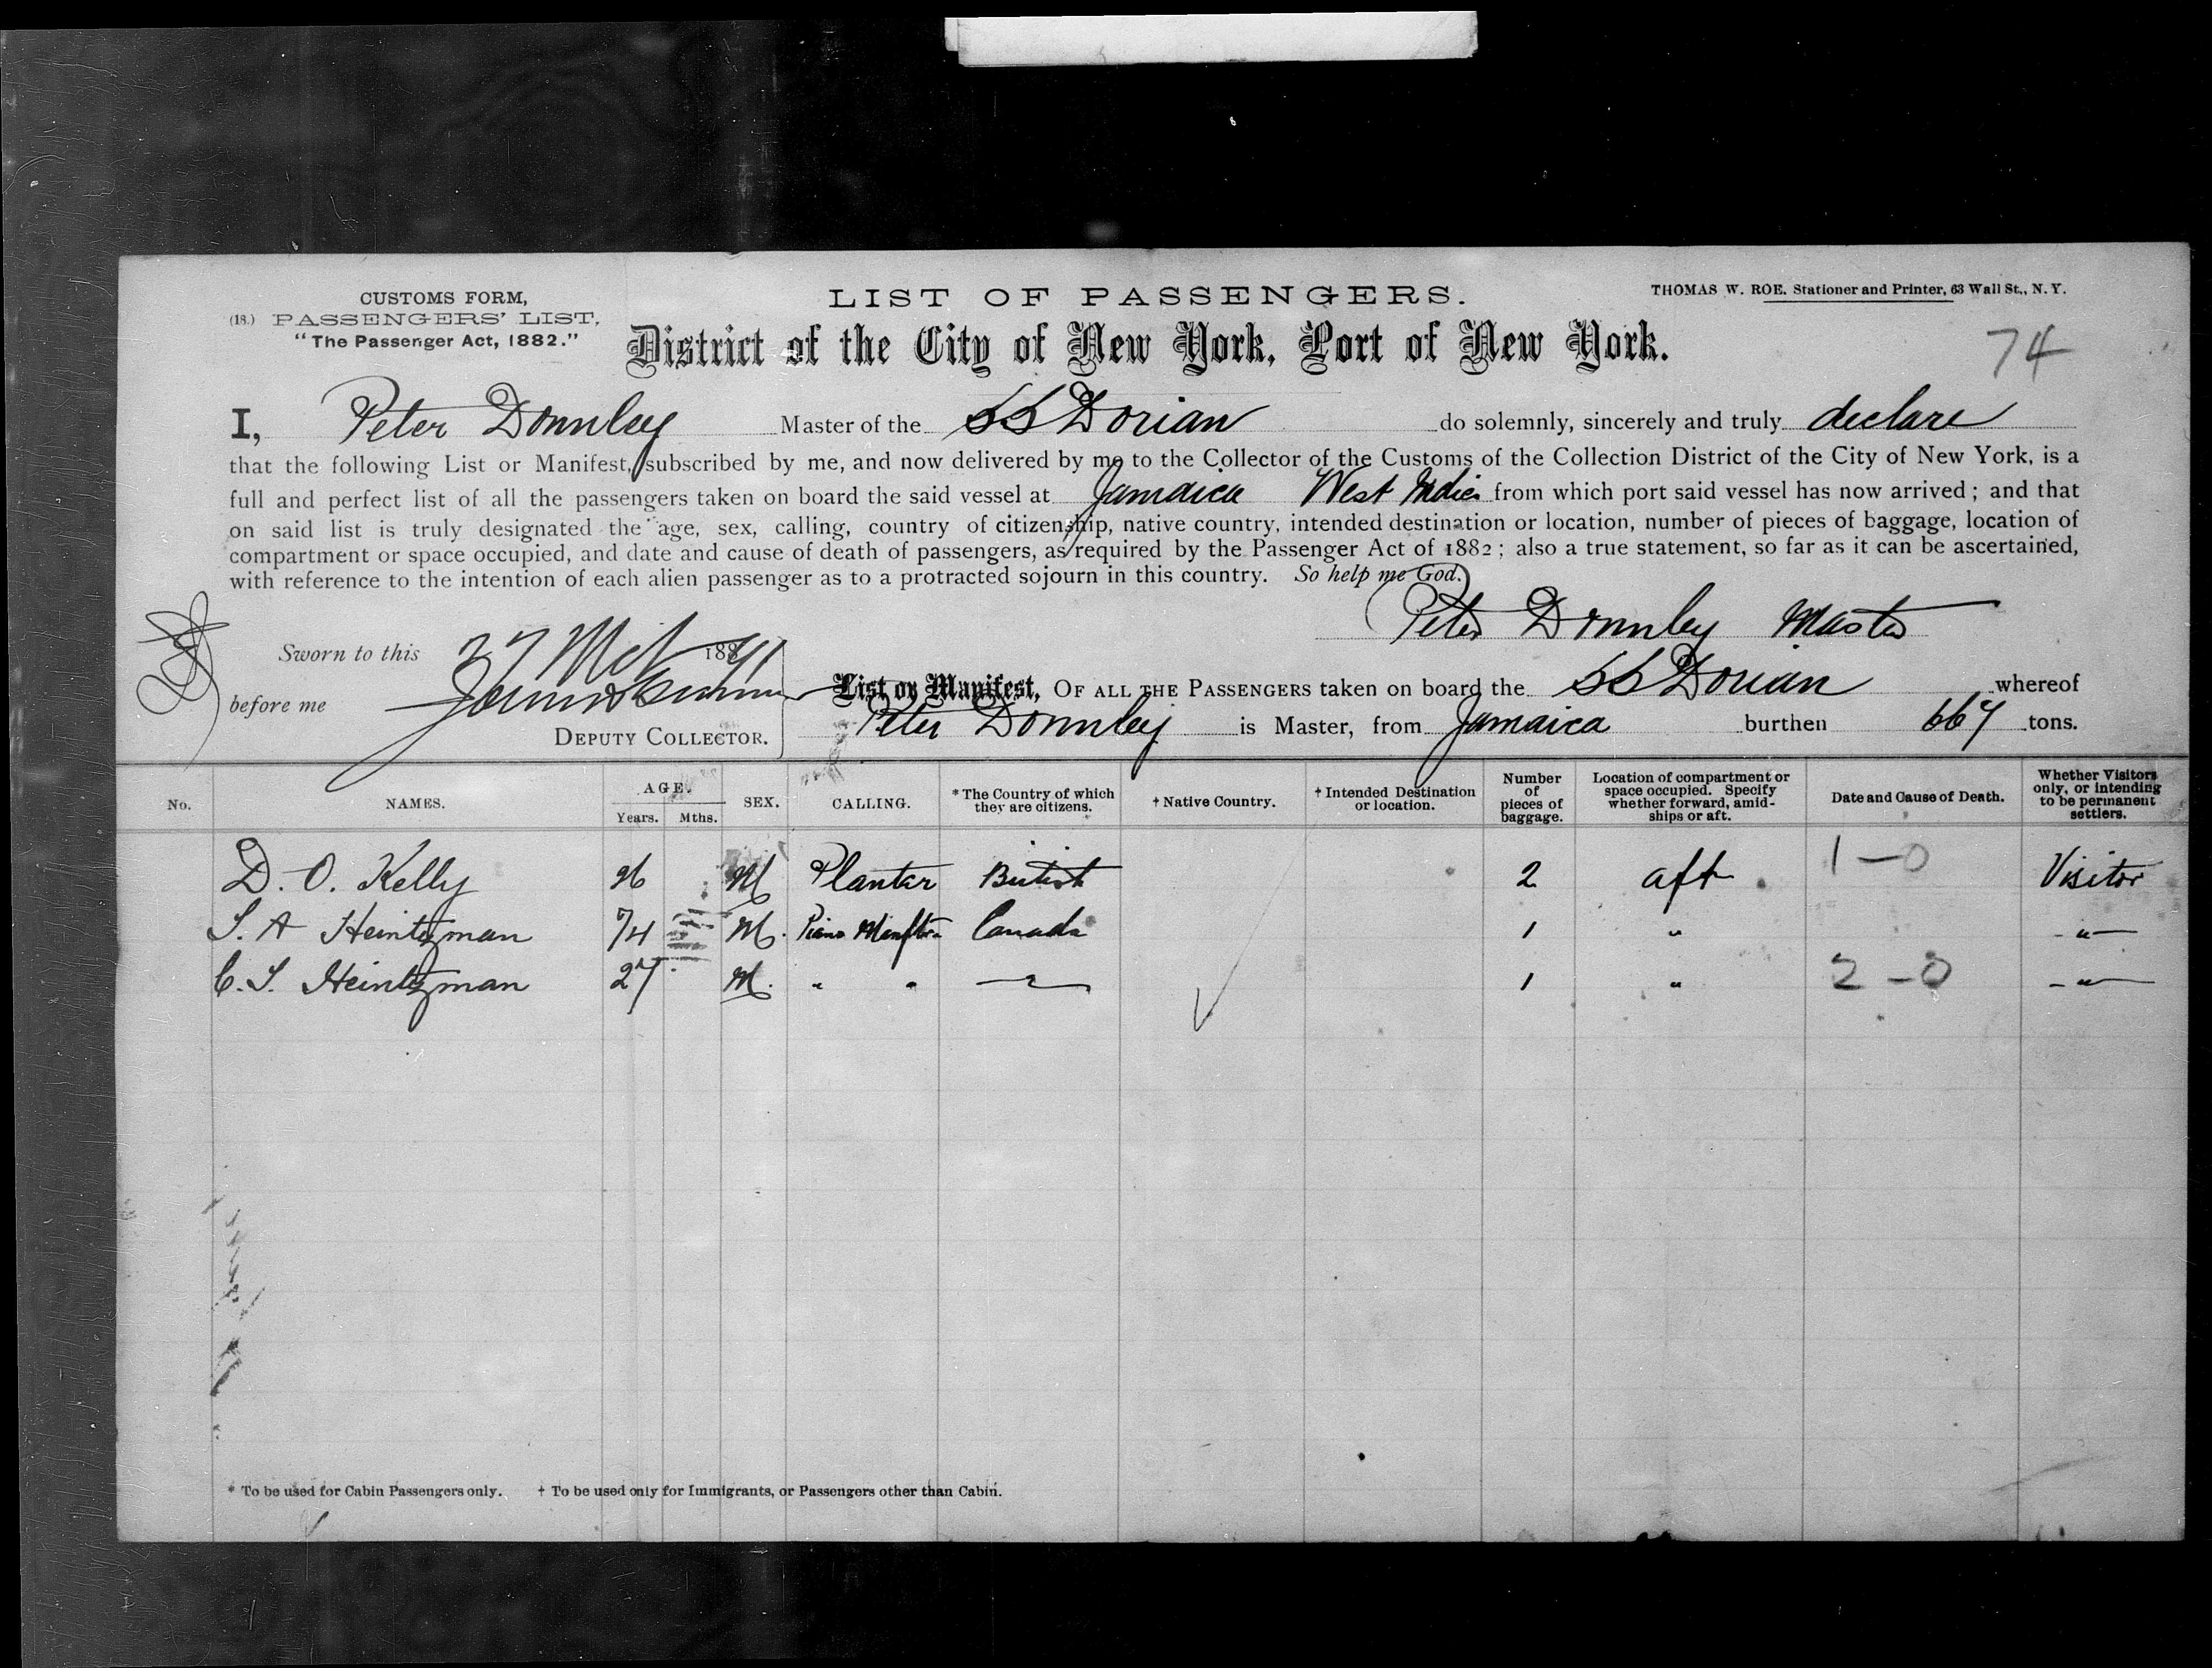 CUSTOMS FORM,
(18.) PASSENGERS' LIST,
"The Passenger Act, 1882."
LIST OF PASSENGERS.
THOMAS W. ROE. Stationer and Printer, 63 Wall St., N. Y.
District of the City of New York, Port of New York.
74
I, Peter Donnley Master of the SS Dorian do solemnly, sincerely and truly declare
that the following List or Manifest, subscribed by me, and now delivered by me to the Collector of the Customs of the Collection District of the City of New York, is a
full and perfect list of all the passengers taken on board the said vessel at Jamaica West Indies from which port said vessel has now arrived; and that
on said list is truly designated the age, sex, calling, country of citizenship, native country, intended destination or location, number of pieces of baggage, location of
compartment or space occupied, and date and cause of death of passengers, as required by the Passenger Act of 1882; also a true statement, so far as it can be ascertained,
with reference to the intention of each alien passenger as to a protracted sojourn in this country. So help me God.
Peter Donnley Master
Sworn to this 27 188 91
before me
DEPUTY COLLECTOR.
List or Manifest, OF ALL THE PASSENGERS taken on board the SS Dorian whereof
Peter Donnley is Master, from Jamaica burthen 667 tons.
No. NAMES. AGE. Years. Mths. SEX. CALLING. * The Country of which they are citizens. † Native Country. † Intended Destination or location. Number of pieces of baggage. Location of compartment or space occupied. Specify whether forward, amidships or aft. Date and Cause of Death. Whether Visitors only, or intending to be permanent settlers.
D. O. Kelly 26 M Planter British 2 aft 1-0 Visitor
S. A Heintzman 74 M. Piano Manftr. Canada 1 " "
C. S. Heintzman 27 M. " " " 1 " 2-0 "
* To be used for Cabin Passengers only. † To be used only for Immigrants, or Passengers other than Cabin.